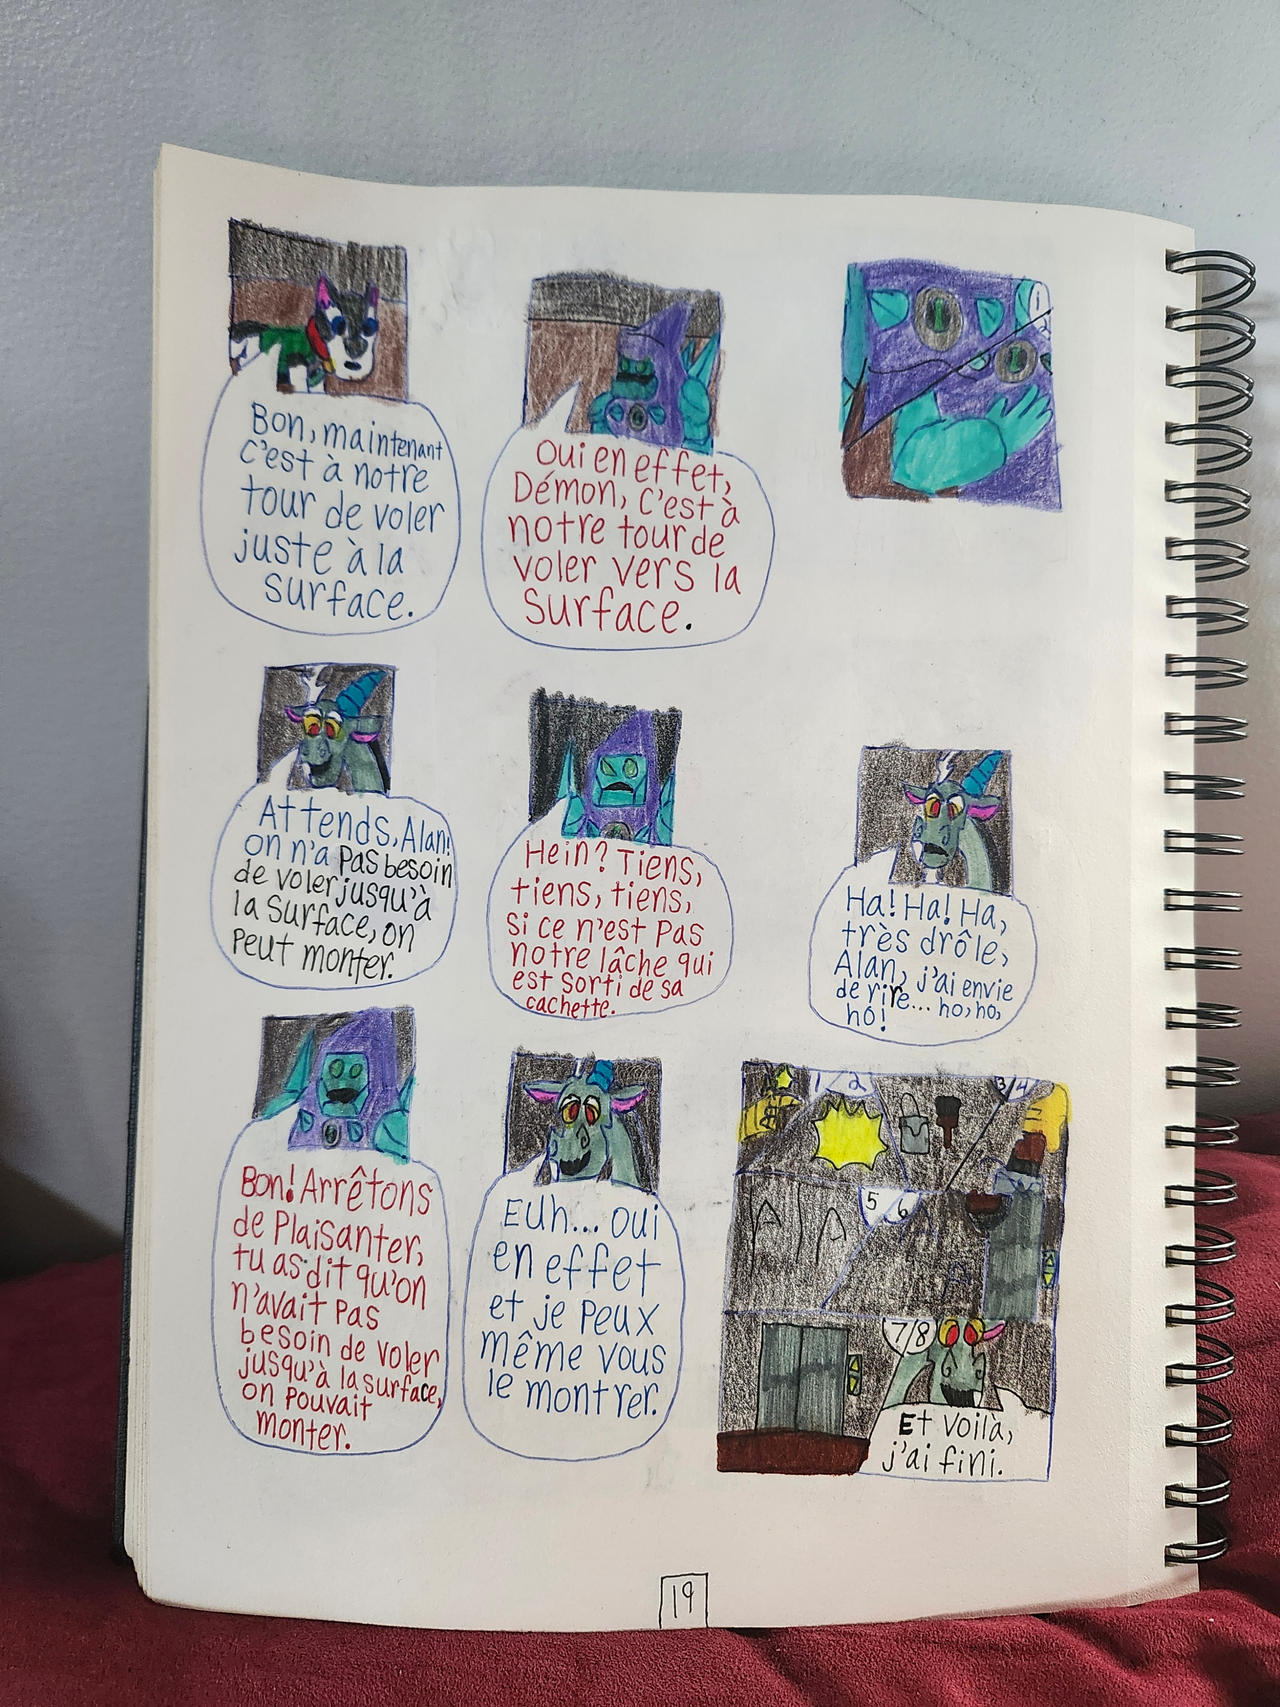 Bon, maintenant
c'est à notre
tour de voler
juste à la
surface.
Oui en effet,
Démon, c'est à
notre tour de
voler vers la
surface.
1
2
Attends, Alan!
on n'a pas besoin
de voler jusqu'à
la surface, on
peut monter.
Hein? Tiens,
tiens, tiens,
si ce n'est pas
notre lâche qui
est sorti de sa
cachette.
Ha! Ha! Ha,
très drôle,
Alan, j'ai envie
de rire... ho, ho,
ho!
Bon! Arrêtons
de plaisanter,
tu as dit qu'on
n'avait pas
besoin de voler
jusqu'à la surface,
on pouvait
monter.
Euh... oui
en effet
et je peux
même vous
le montrer.
1/2
3/4
5
6
7/8
Et voilà,
j'ai fini.
19